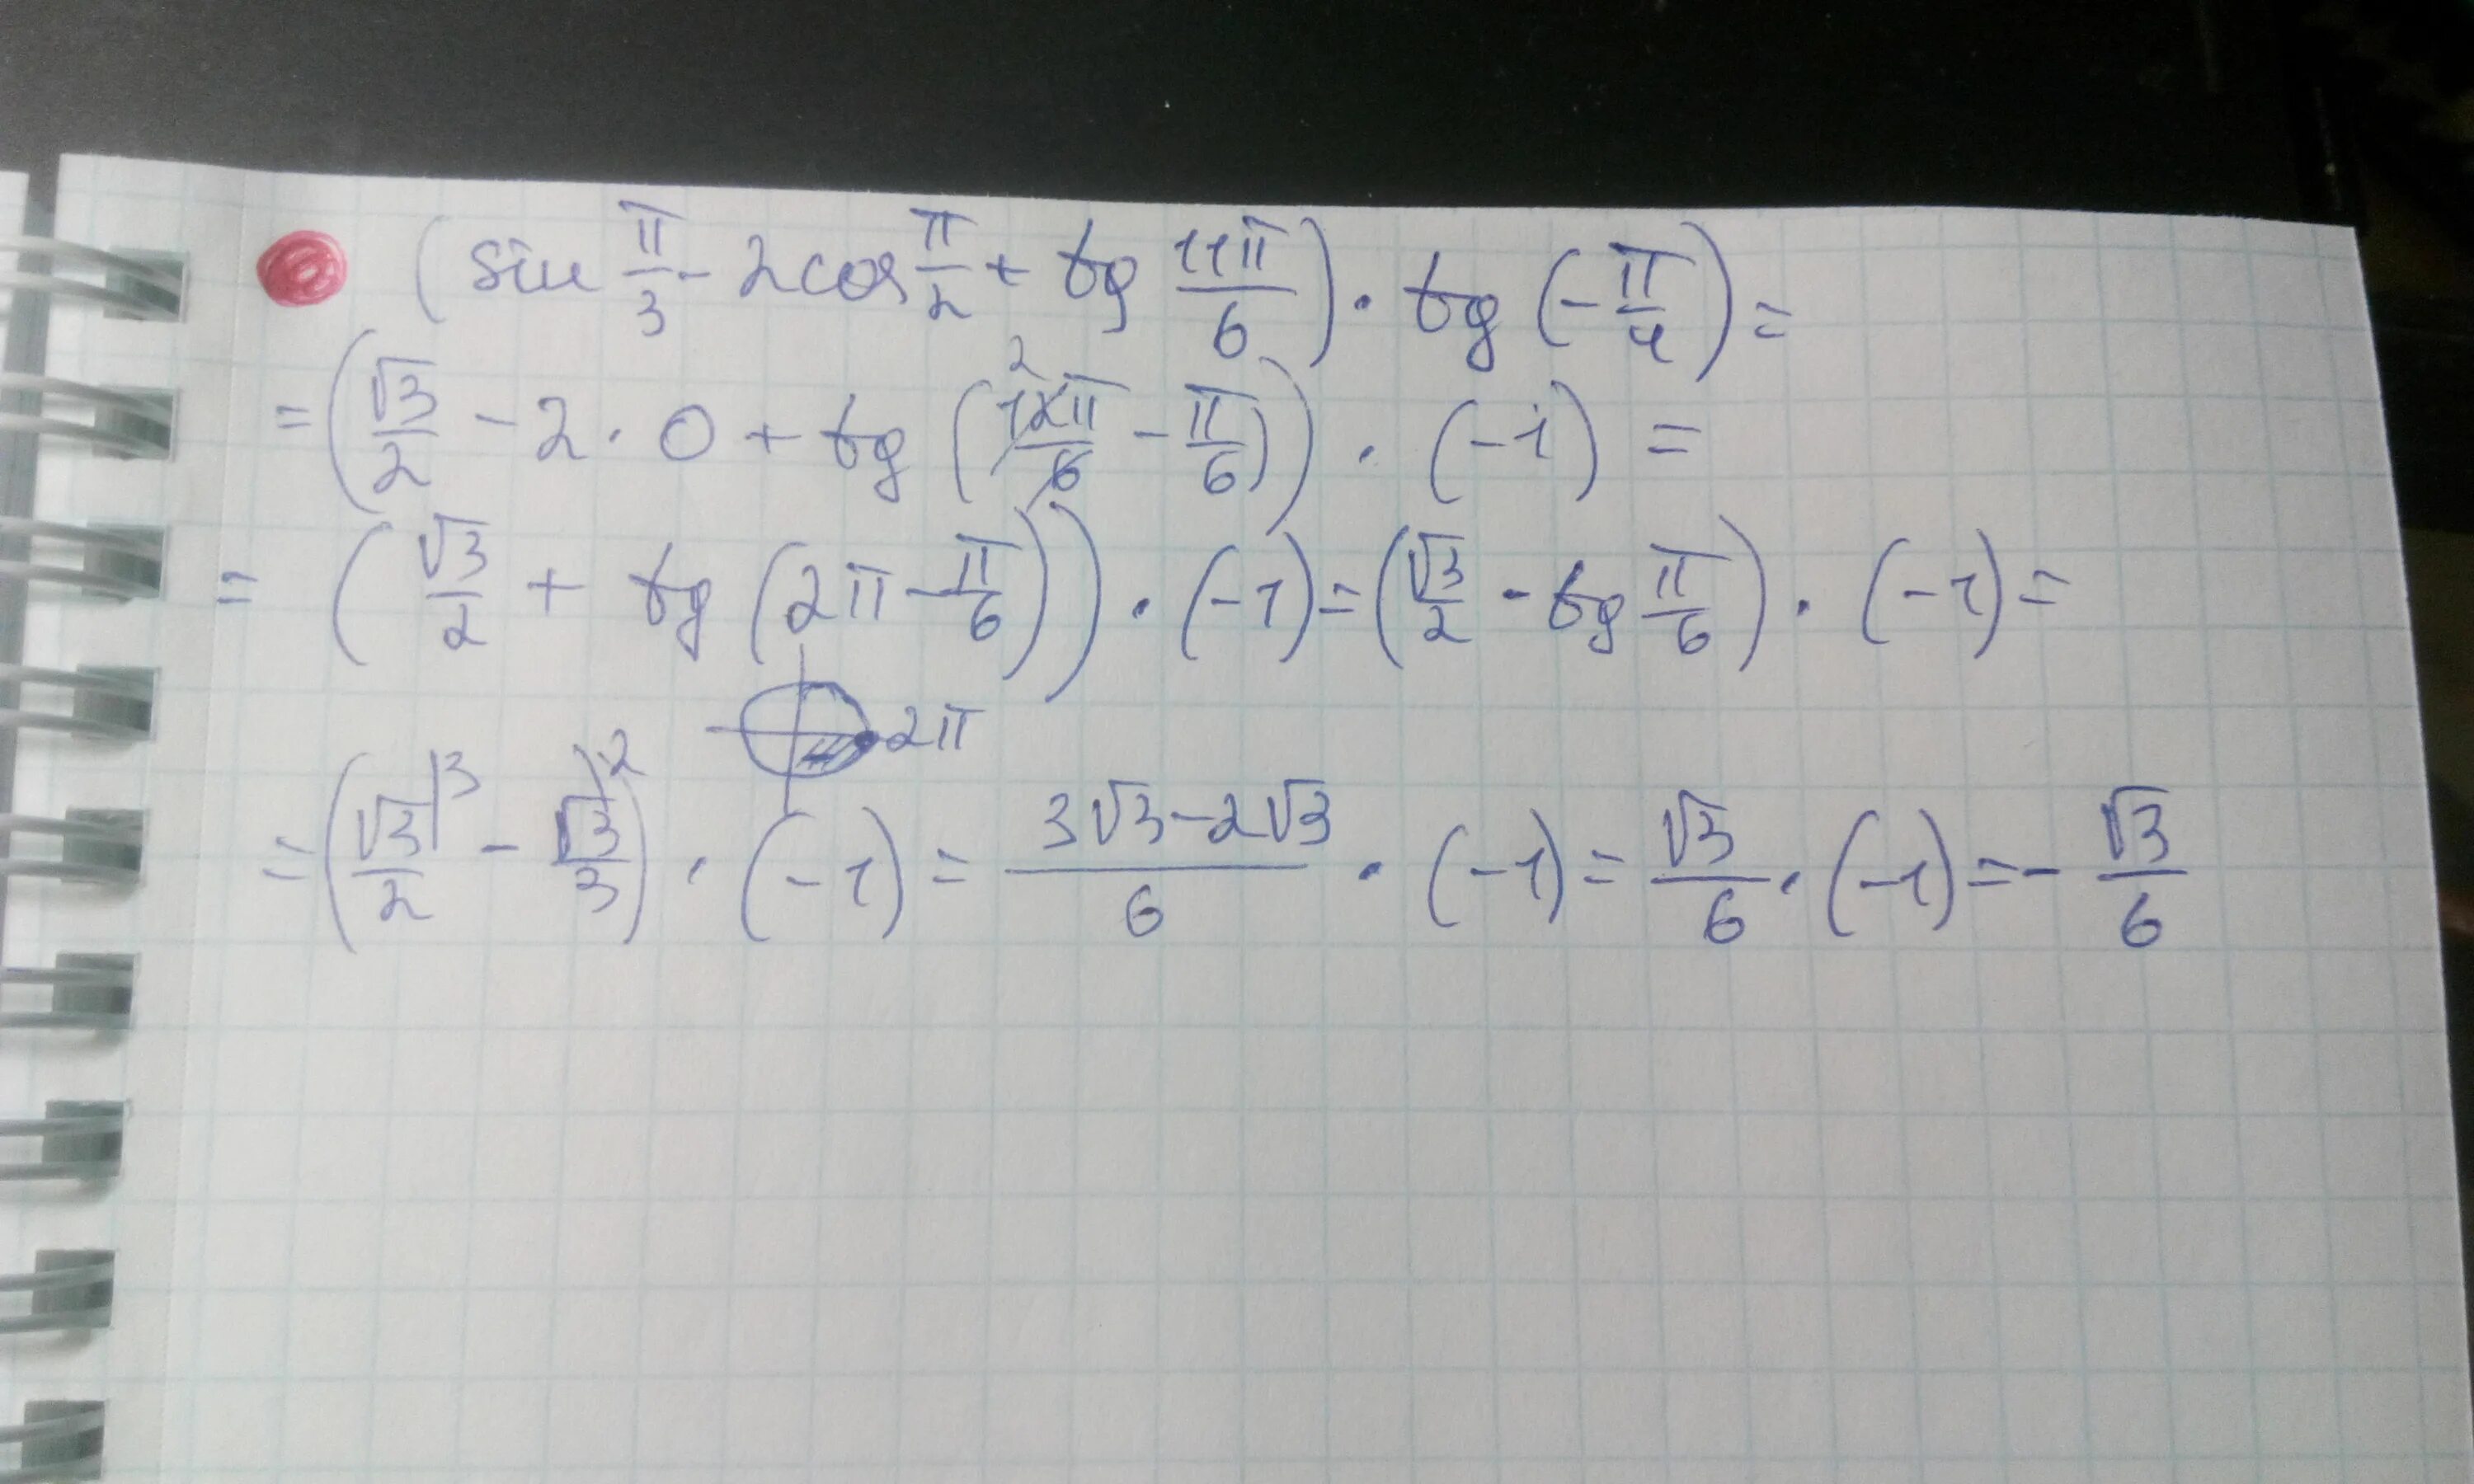 (sin π/3 - 2cos π/2 + tg 11π/6) · tg (-π/4) =
= (√3/2 - 2 · 0 + tg (12π/6 ² - π/6)) · (-1) =
= (√3/2 + tg (2π - π/6)) · (-1) = (√3/2 - tg π/6) · (-1) =
2π
= (√3/2 ³ - √3/3 ²) · (-1) = (3√3 - 2√3)/6 · (-1) = √3/6 · (-1) = - √3/6